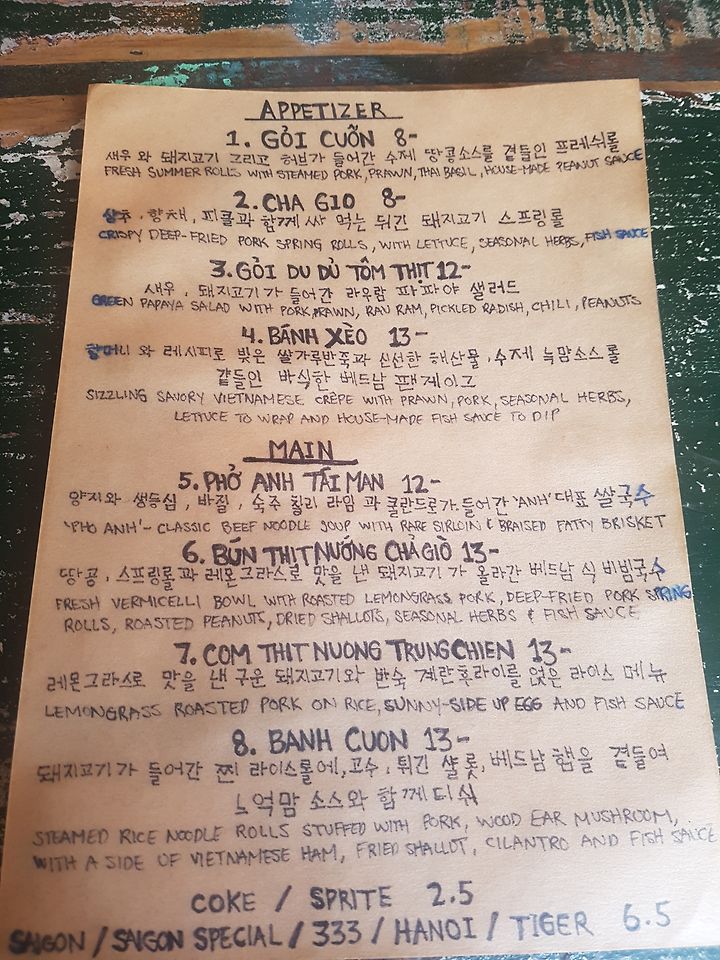 APPETIZER
1. GỎI CUỐN 8-
새우 와 돼지고기 그리고 허브가 들어간 수제 땅콩소스를 곁들인 프레쉬롤
FRESH SUMMER ROLLS WITH STEAMED PORK, PRAWN, THAI BASIL, HOUSE-MADE PEANUT SAUCE
2. CHA GIO 8-
상추, 향채, 피클과 함께 싸 먹는 튀긴 돼지고기 스프링롤
CRISPY DEEP-FRIED PORK SPRING ROLLS, WITH LETTUCE, SEASONAL HERBS, FISH SAUCE
3. GỎI DU DỦ TÔM THỊT 12-
새우, 돼지고기가 들어간 라우람 파파야 샐러드
GREEN PAPAYA SALAD WITH PORK, PRAWN, RAU RAM, PICKLED RADISH, CHILI, PEANUTS
4. BÁNH XÈO 13-
할머니 와 레시피로 빚은 쌀가루반죽과 신선한 해산물, 수제 늑맘소스로
곁들인 바식한 베드남 팬케이크
SIZZLING SAVORY VIETNAMESE CRÊPE WITH PRAWN, PORK, SEASONAL HERBS,
LETTUCE TO WRAP AND HOUSE-MADE FISH SAUCE TO DIP
MAIN
5. PHỞ ANH TÁI MAN 12-
양지와 생등심, 바질, 숙주 칠리 라임 과 쿨란드로가 들어간 'ANH' 대표 쌀국수
'PHO ANH'- CLASSIC BEEF NOODLE SOUP WITH RARE SIRLOIN & BRAISED FATTY BRISKET
6. BÚN THỊT NƯỚNG CHẢ GIÒ 13-
땅콩, 스프링롤과 레몬그라스로 맛을 낸 돼지고기가 올라간 베드남 식 비빔국수
FRESH VERMICELLI BOWL WITH ROASTED LEMONGRASS PORK, DEEP-FRIED PORK SPRING
ROLLS, ROASTED PEANUTS, DRIED SHALLOTS, SEASONAL HERBS & FISH SAUCE
7. COM THIT NUONG TRUNG CHIEN 13-
레몬그라스로 맛을 낸 구운 돼지고기와 반숙 계란후라이를 얹은 라이스 메뉴
LEMONGRASS ROASTED PORK ON RICE, SUNNY-SIDE UP EGG AND FISH SAUCE
8. BANH CUON 13-
돼지고기가 들어간 찐 라이스롤에, 고수, 튀긴 샬롯, 베드남 햄을 곁들여
느억맘 소스와 함께 디쉬
STEAMED RICE NOODLE ROLLS STUFFED WITH PORK, WOOD EAR MUSHROOM,
WITH A SIDE OF VIETNAMESE HAM, FRIED SHALLOT, CILANTRO AND FISH SAUCE
COKE / SPRITE 2.5
SAIGON / SAIGON SPECIAL / 333 / HANOI / TIGER 6.5